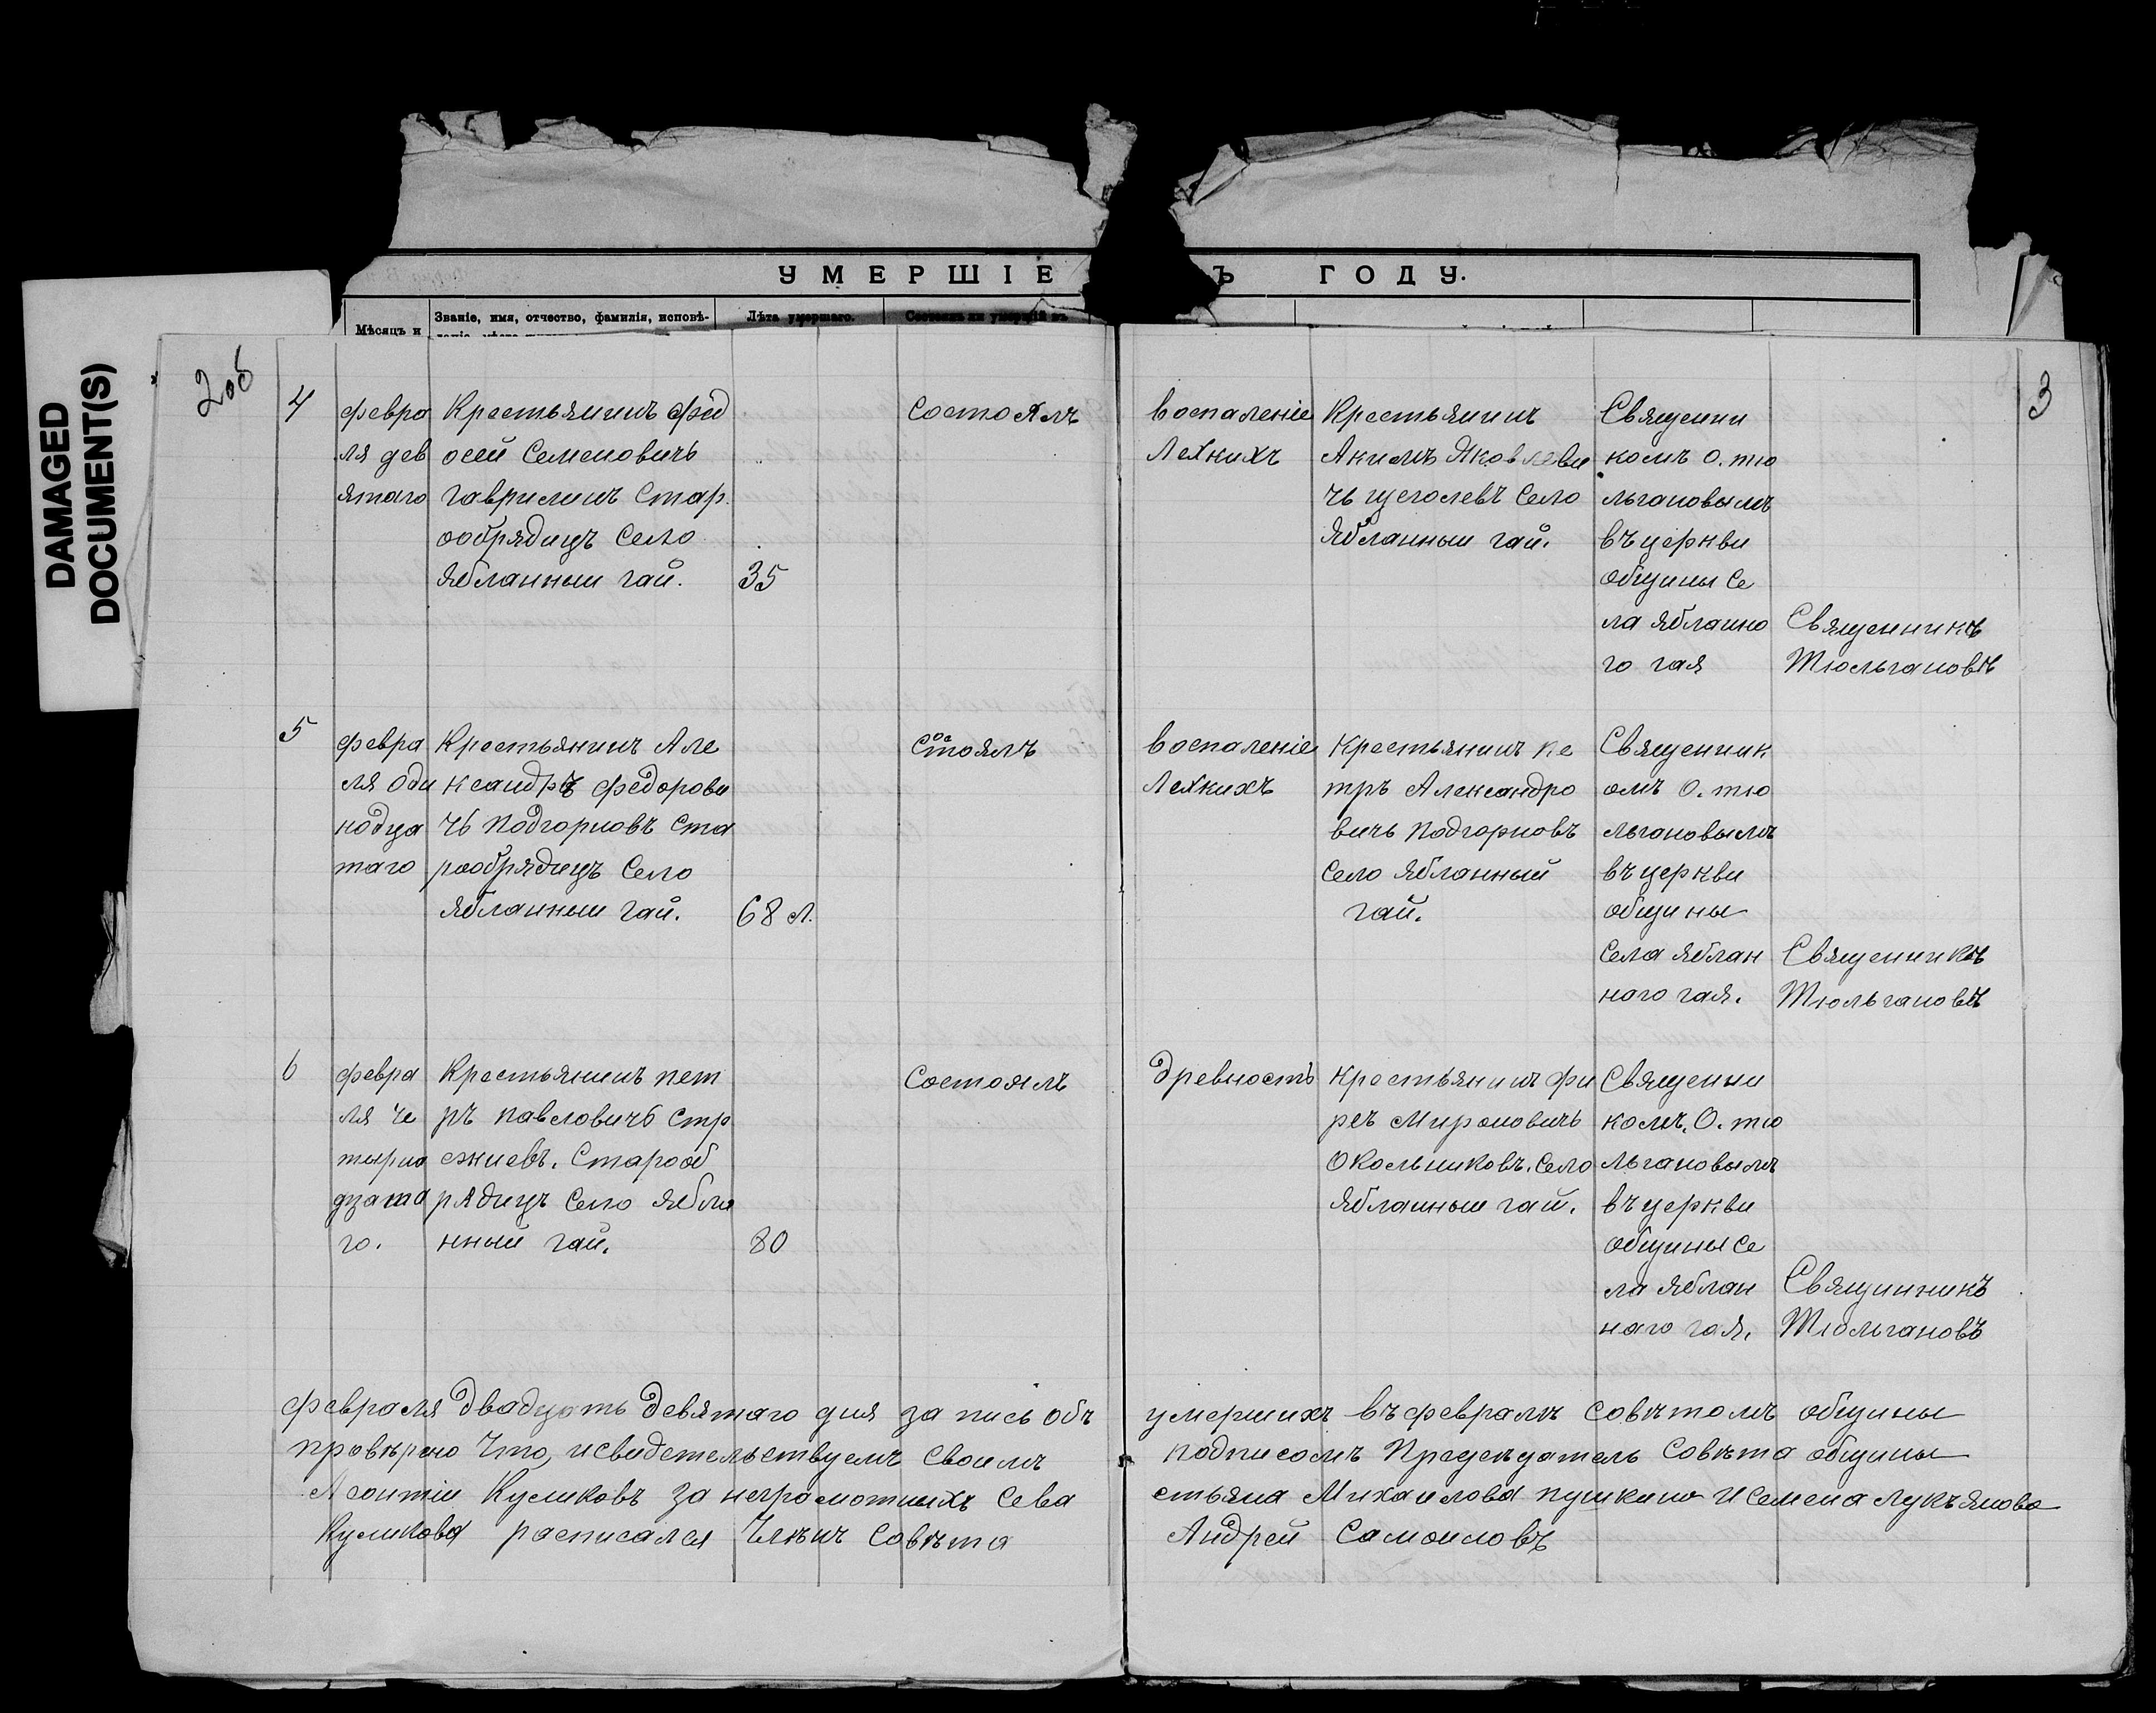 DAMAGED
DOCUMENT(S)
УМЕРШІЕ Ъ ГОДУ.
Мѣсяцъ и
Званіе, имя, отчество, фамилія, исповѣ-
Лѣта умершаго.
Состоялъ ли умершій въ
2об
3
4
февра
ля дев
ятаго
Крестьянинъ фед
осей Семеновичь
гаврилинъ Стар
ообрядицъ Село
Яблánный гай.
35
СостоЯлъ
воспаленіе
Лехкихъ
Крестьянинъ
Акимъ Яковлеви
чь щеголевъ Село
Яблánный гай.
Священни
комъ О. тю
льгановымъ
въ церкви
общины Се
ла Яблано
го гая
Священникъ
Тюльгановъ
5
февра
ля Оди
надца
таго
Крестьянинъ Але
ксандръ федорови
чь Подгорновъ Ста
рообрядицъ Село
Яблánный гай.
68 л.
Состоялъ
воспаленіе
Лехкихъ
Крестьянинъ пе
тръ Александро
вичь Подгорновъ
Село Яблáнный
гай.
Священник
омъ О. тю
льгановымъ
въ церкви
общины
Села Яблан
наго гая.
Священникъ
Тюльгановъ
6
февра
ля че
тырна
дцата
го.
Крестьянинъ пет
ръ павловичь Стр
ежневъ. Старооб
рядицъ Село Ябла
нный гай.
80
Состоялъ
древность
Крестьянинъ фи
ръ Мироновичь
Окольниковъ. Село
Яблánный гай.
Священни
комъ. О. тю
льгановымъ
въ церкви
общины Се
ла Яблан
наго гая.
Свящинникъ
Тюльгановъ
февраля двадцать девятаго дня запись объ умершихъ въ февралѣ Совѣтомъ общины
провѣрено что, и свидетельствуемъ Своимъ подписомъ Председатель Совѣта общины
Леонтіи Куликовъ за неграмотныхъ Сева стьяна Михаилова пушкина И Семена Лукъянова
Куликова расписался Члѣнъ Совѣта Андрей Самоиловъ